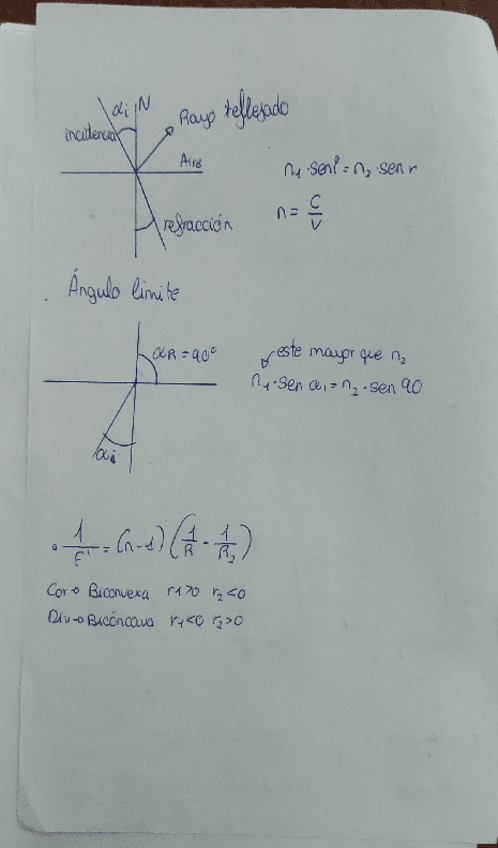 αi N
Rayo reflejado
incidencia
Aire
n₁ · sen i = n₂ · sen r
n = C/V
refracción
. Ángulo límite
αR = 90°
este mayor que n₂
n₁ · sen αi = n₂ · sen 90
αi
• 1/F' = (n-1) (1/R - 1/R₂)
Con→ Biconvexa r1>0 r₂<0
Div→ Bicóncava r₁<0 r₂>0